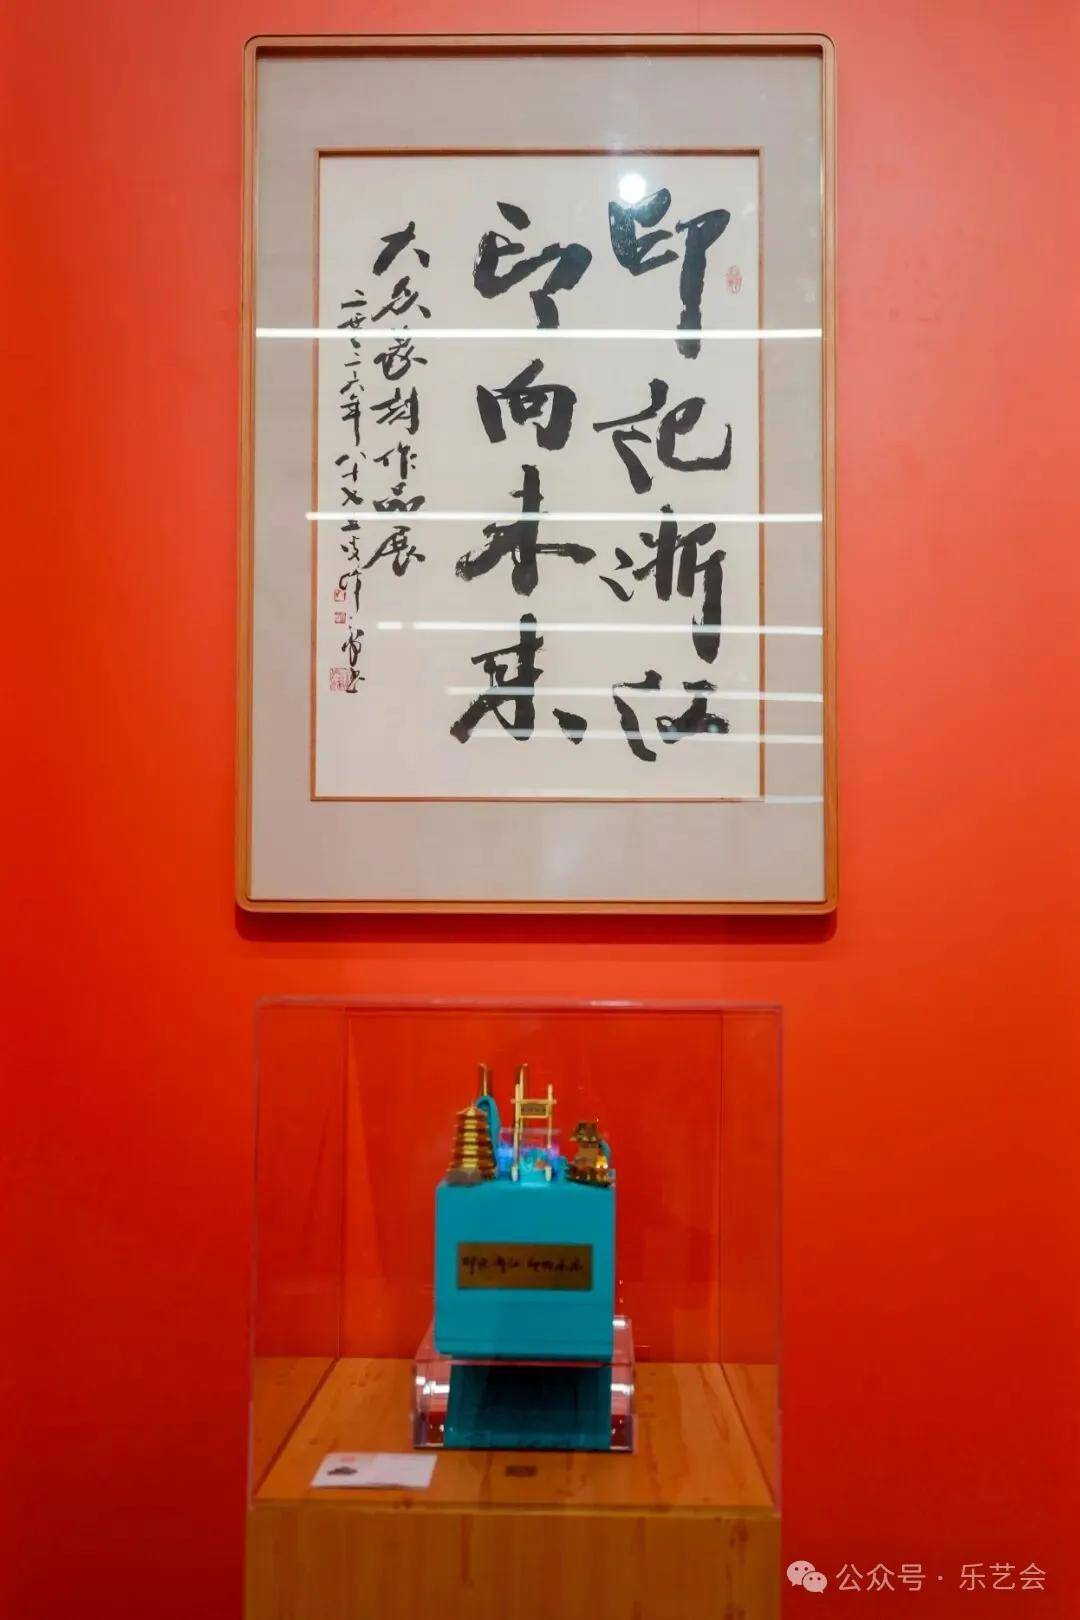 印记浙江
印向未来
大众篆刻作品展
二〇二六年八十七
印记浙江 印向未来
公众号·乐艺会